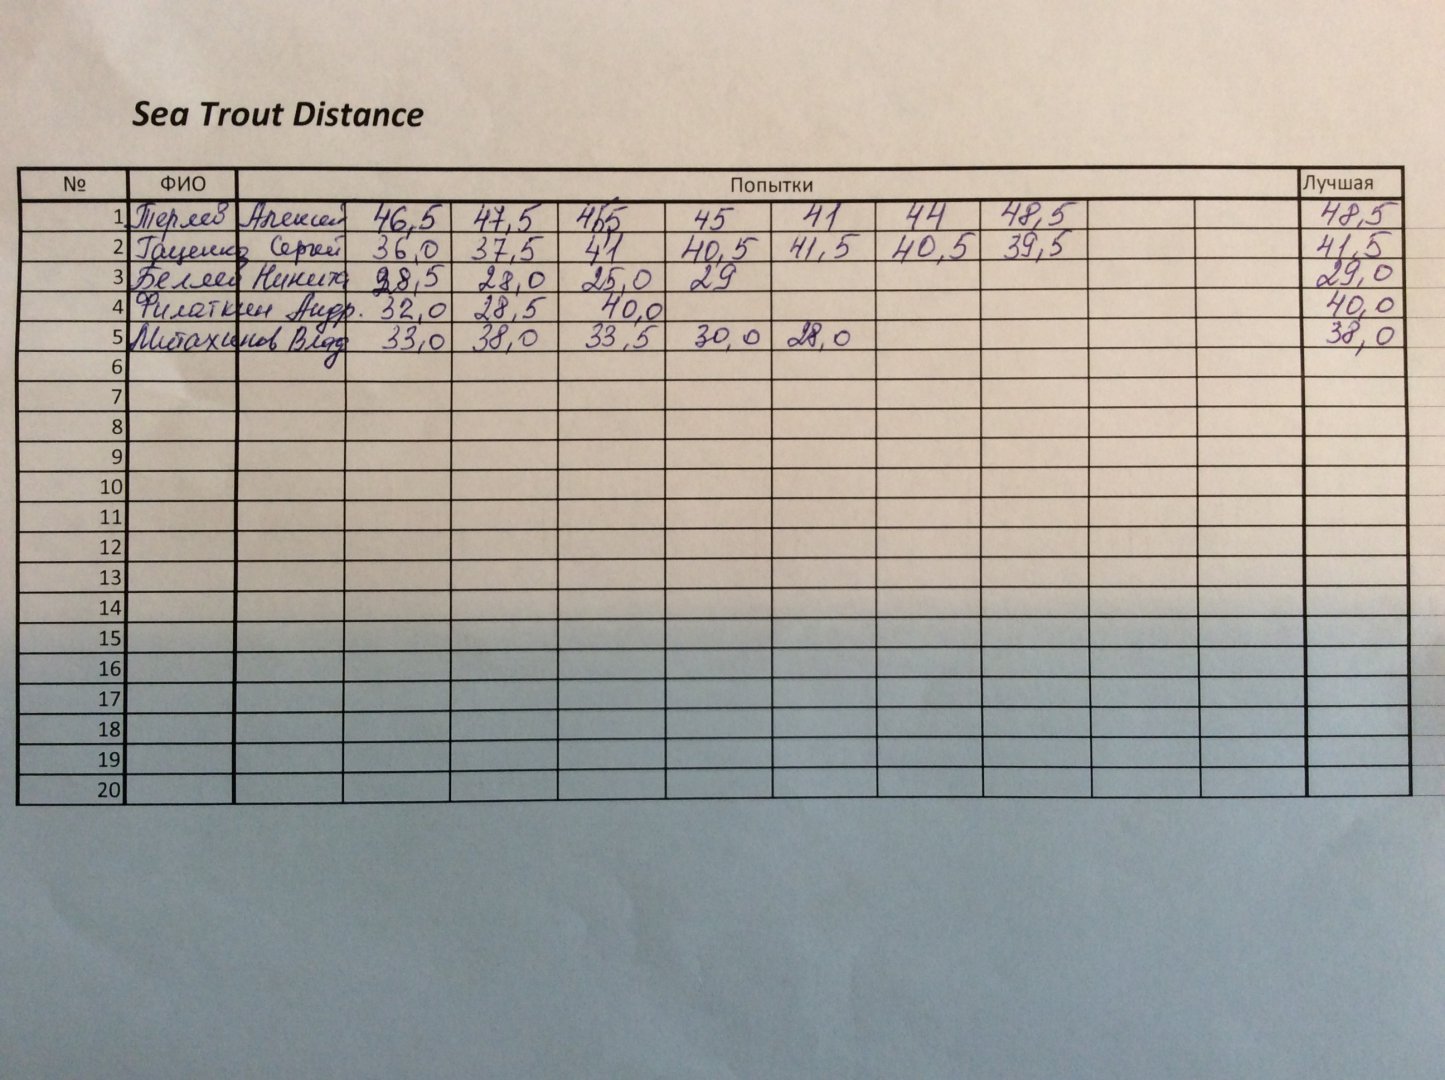 Sea Trout Distance
№ ФИО Попытки Лучшая
1 Терлев Алексей 46,5 47,5 45 41 44 48,5 48,5
2 Гаценко Сергей 36,0 37,5 41 40,5 41,5 40,5 39,5 41,5
3 Беляев Никита 28,5 28,0 25,0 29 29,0
4 Филаткин Андр. 32,0 28,5 40,0 40,0
5 Митахинов Влад 33,0 38,0 33,5 30,0 28,0 38,0
6
7
8
9
10
11
12
13
14
15
16
17
18
19
20